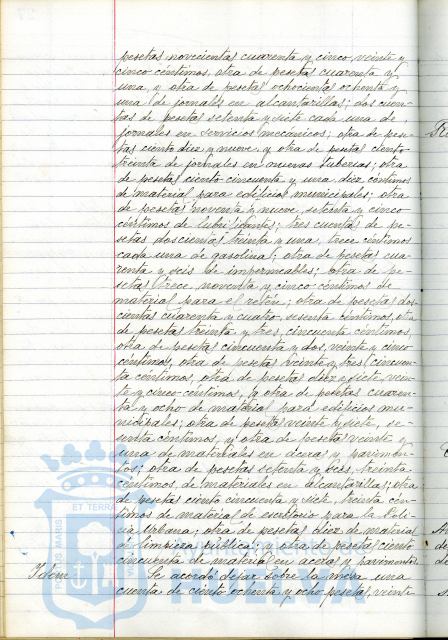 pesetas novecientas cuarenta y cinco, veinte y
cinco céntimos, otra de pesetas cuarenta y
una, y otra de pesetas ochocientas ochenta y
una de jornales en alcantarillas; dos cuen-
tas de pesetas setenta y siete cada una de
jornales en servicios mecánicos; otra de pese-
tas ciento diez y nueve, y otra de pesetas ciento
treinta de jornales en nuevas tuberias; otra
de pesetas ciento cincuenta y una, diez céntimos
de material para edificios municipales; otra
de pesetas noventa y nueve, setenta y cinco
céntimos de lubrificantes; tres cuentas de pe-
setas doscientas treinta y una, trece céntimos
cada una de gasolina; otra de pesetas cua-
renta y seis de impermeables; otra de pe-
setas trece, noventa y cinco céntimos de
material para el retén; otra de pesetas dos-
cientas cuarenta y cuatro, sesenta céntimos, otra
de pesetas treinta y tres, cincuenta céntimos,
otra de pesetas cincuenta y dos, veinte y cinco
céntimos, otra de pesetas veinte y tres, cincuen-
ta céntimos, otra de pesetas diez y siete, vein-
te y cinco céntimos, y otra de pesetas cuaren-
ta y ocho de material para edificios mu-
nicipales; otra de pesetas veinte y siete, se-
senta céntimos, y otra de pesetas veinte y
una de materiales en aceras y pavimen-
tos; otra de pesetas setenta y seis, treinta
céntimos, de materiales en alcantarillas; otra
de pesetas ciento cincuenta y siete, treinta cén-
timos de material de escritorio para la Poli-
cia Urbana; otra de pesetas diez de material
de limpieza pública; y otra de pesetas ciento
cincuenta de material en aceras y pavimentos.
Idem Se acordó dejar sobre la mesa una
cuenta de ciento ochenta y ocho pesetas, veinte
PORTUS MARIS ET TERRAE
HUELVA